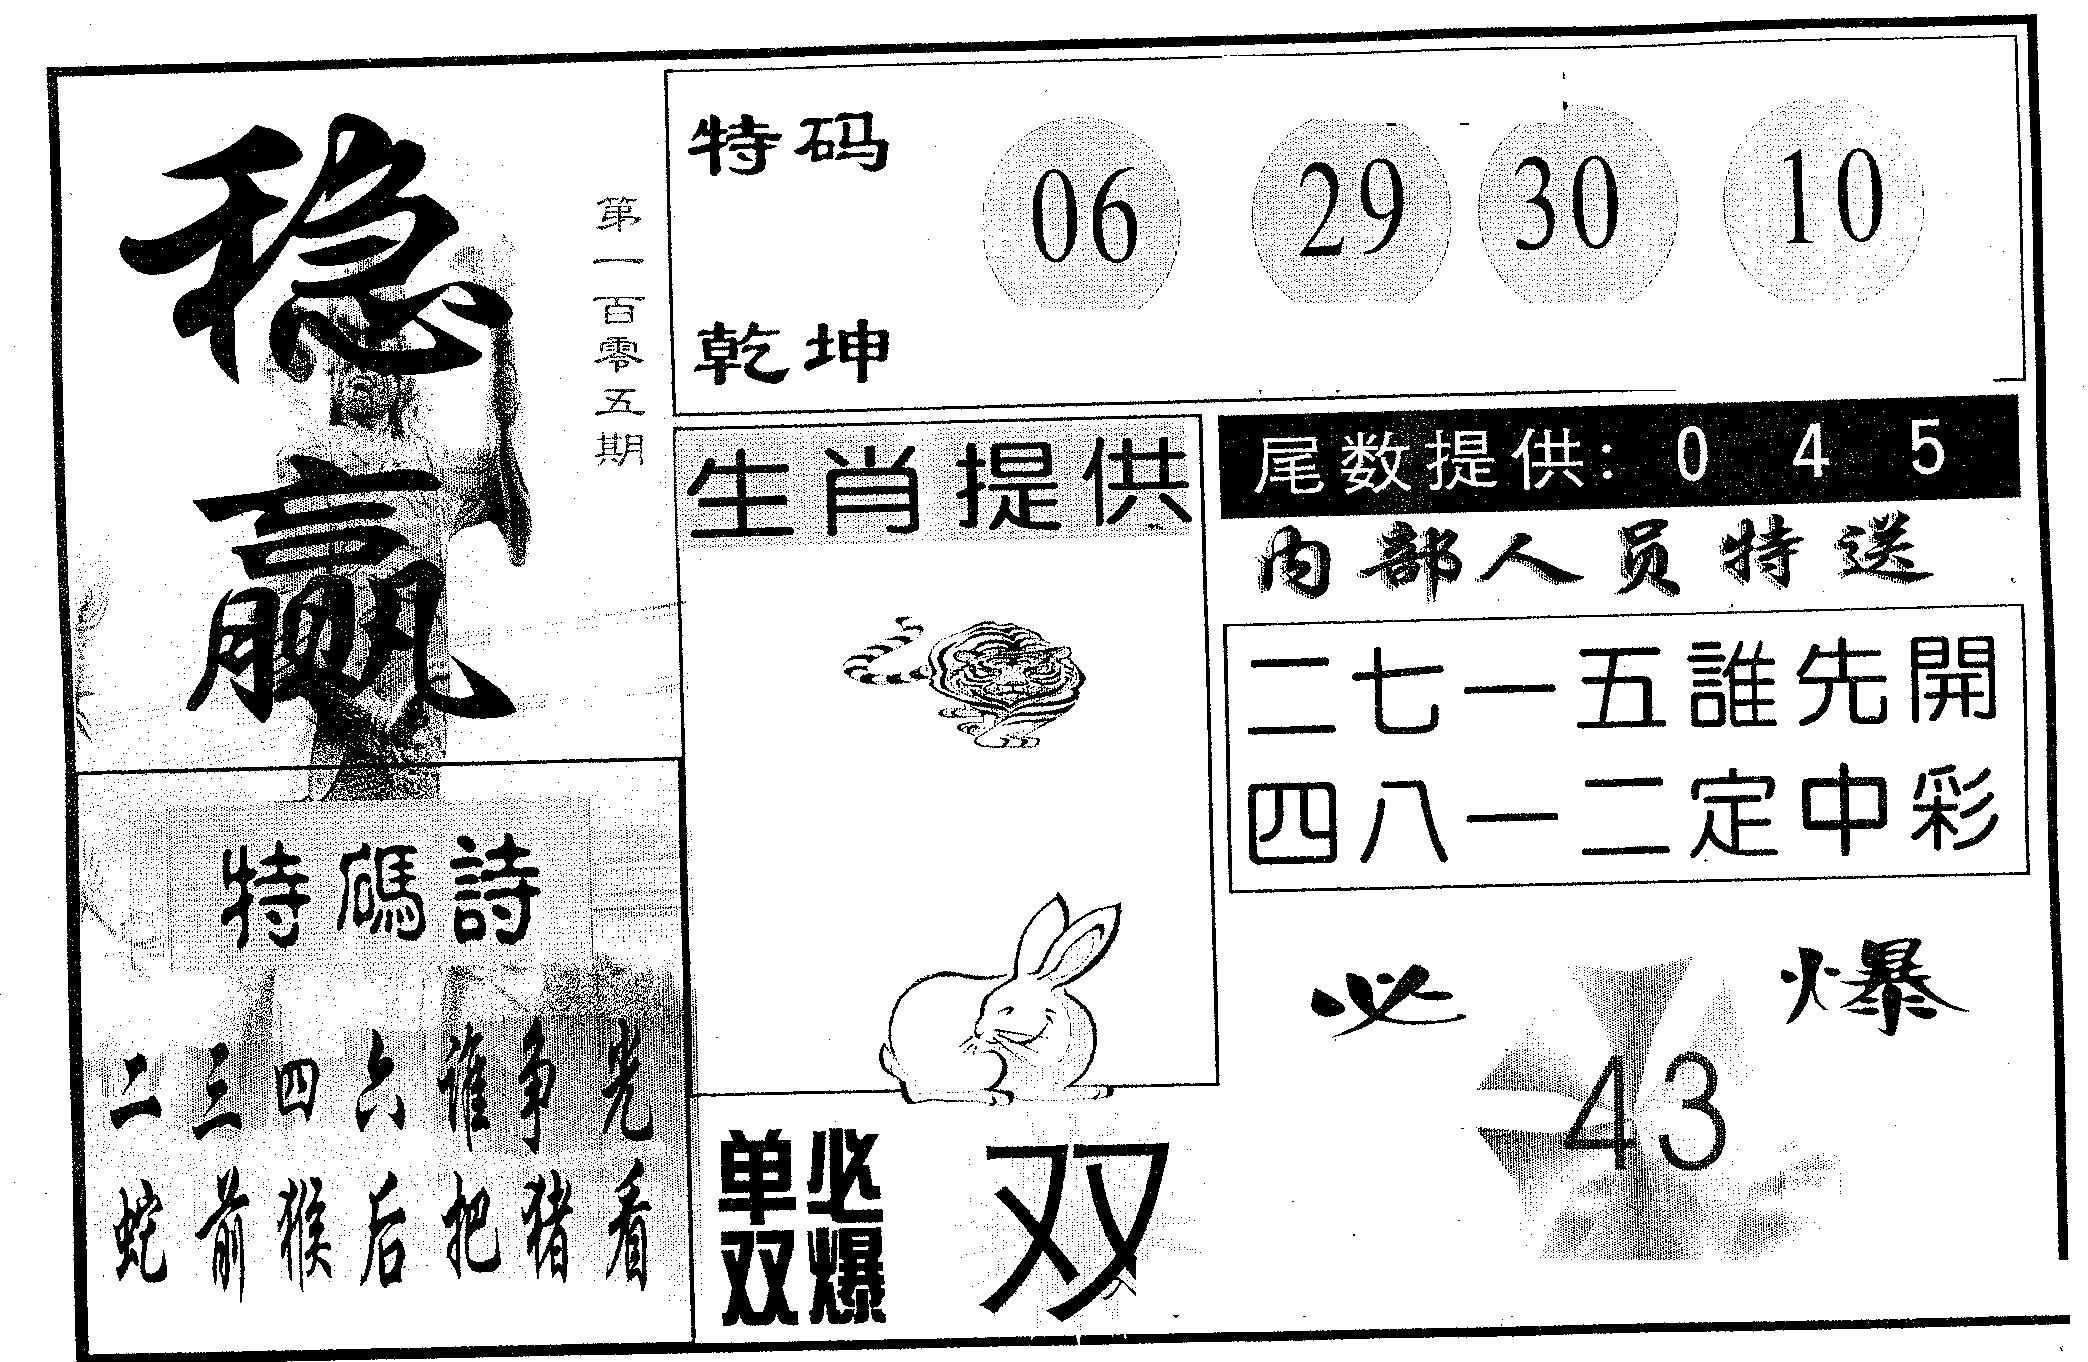 稳赢
第一百零五期
特码
乾坤
06 29 30 10
生肖提供
尾数提供: 0 4 5
内部人员特送
二七一五誰先開
四八一二定中彩
必爆
43
特碼詩
二三四六谁争先
蛇前猴后把猪看
单双必爆
双